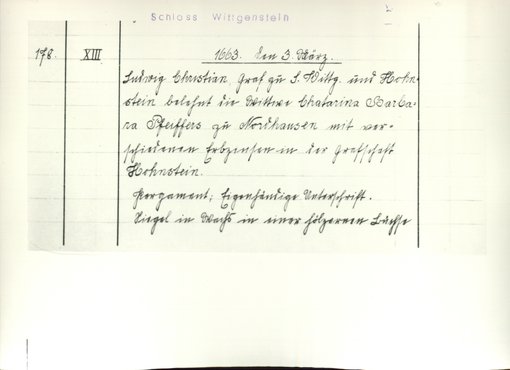 Schloss Wittgenstein
178. XIII 1663. Den 3. März.
Ludwig Christian Graf zu S. Wittg. und Hohn-
stein belehnt die Wittwe Chatarina Barba-
ra Pfeiffers zu Nordhausen mit ver-
schiedenen Erbzinsen in der Grafschaft
Hohnstein.
Pergament; Eigenhändige Unterschrift.
Siegel in Wachs in einer hölzernen Büchse